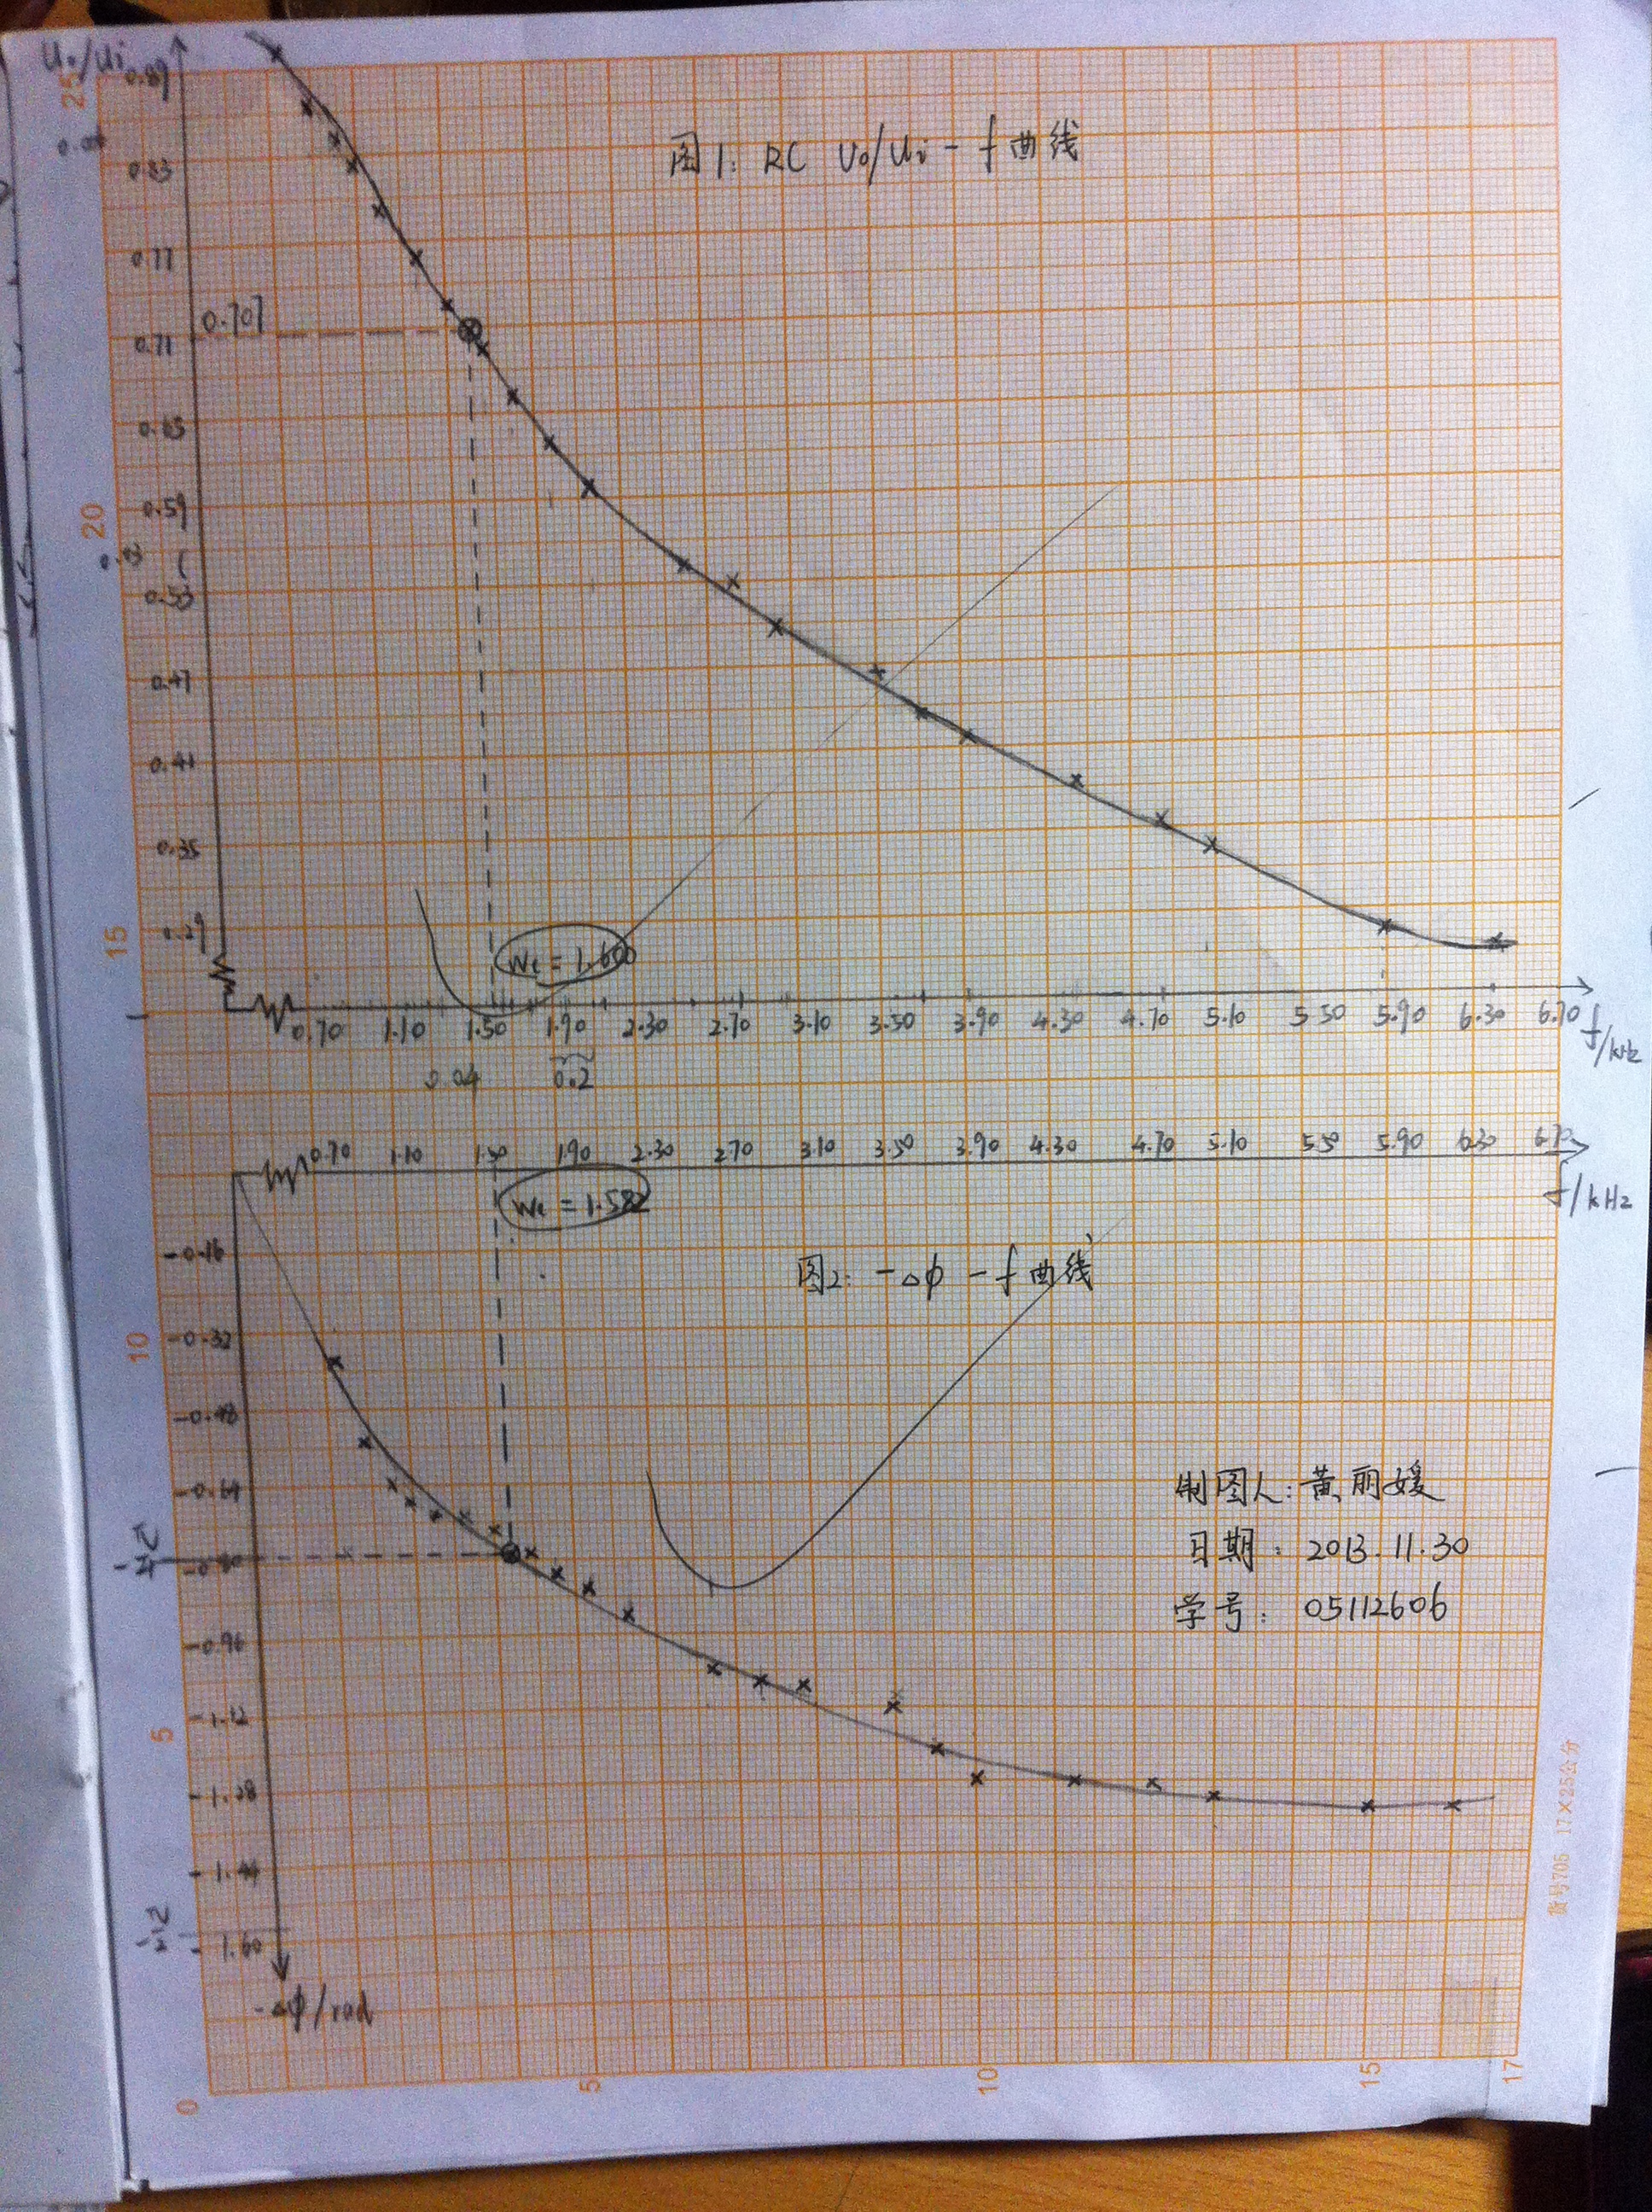 U₀/Ui
25
0.89
0.83
0.77
0.707
0.71
0.65
20
0.59
0.53
0.47
0.41
0.35
15
0.29
图1: RC U₀/Ui - f 曲线
Wc = 1.600
0.70 1.10 1.50 1.90 2.30 2.70 3.10 3.50 3.90 4.30 4.70 5.10 5.50 5.90 6.30 6.70
f/kHz
0.04 0.2
0.70 1.10 1.50 1.90 2.30 2.70 3.10 3.50 3.90 4.30 4.70 5.10 5.50 5.90 6.30 6.70
f/kHz
Wc = 1.582
图2: -△φ - f 曲线
-0.16
10
-0.32
-0.48
-0.64
-π/4
-0.80
-0.96
5
-1.12
-1.28
-1.44
-π/2
-1.60
-△φ/rad
制图人: 黄丽媛
日期: 2013.11.30
学号: 05112606
货号705 17×25公分
0 5 10 15 17